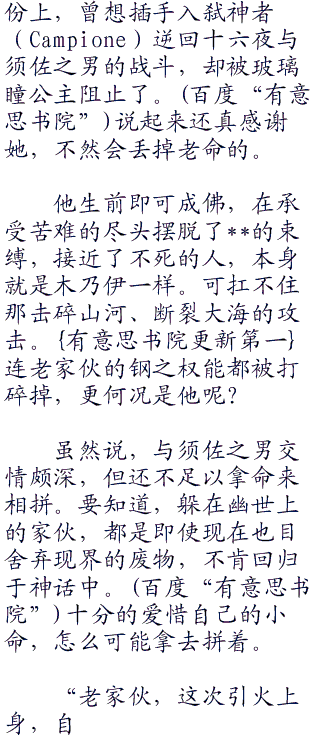 份上，曾想插手入弑神者
（Campione）逆回十六夜与
须佐之男的战斗，却被玻璃
瞳公主阻止了。(百度“有意
思书院”)说起来还真感谢
她，不然会丢掉老命的。
他生前即可成佛，在承
受苦难的尽头摆脱了**的束
缚，接近了不死的人，本身
就是木乃伊一样。可扛不住
那击碎山河、断裂大海的攻
击。{有意思书院更新第一}
连老家伙的钢之权能都被打
碎掉，更何况是他呢？
虽然说，与须佐之男交
情颇深，但还不足以拿命来
相拼。要知道，躲在幽世上
的家伙，都是即使现在也目
舍弃现界的废物，不肯回归
于神话中。(百度“有意思书
院”)十分的爱惜自己的小
命，怎么可能拿去拼着。
“老家伙，这次引火上
身，自